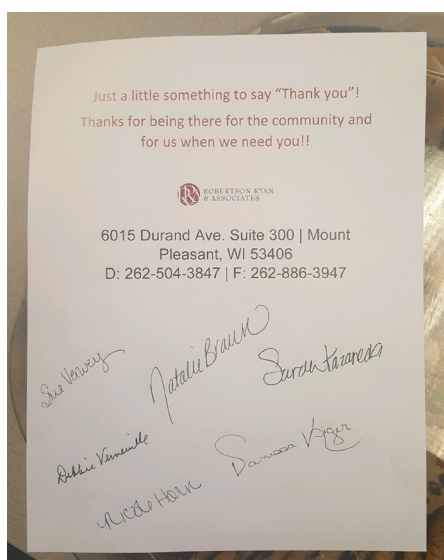 Just a little something to say “Thank you”!
Thanks for being there for the community and
for us when we need you!!
RRA ROBERTSON RYAN
& ASSOCIATES
6015 Durand Ave. Suite 300 | Mount
Pleasant, WI 53406
D: 262-504-3847 | F: 262-886-3947
Natalie Braun
Sue
Sarah
Debbie
Nicole Horn
Kiger